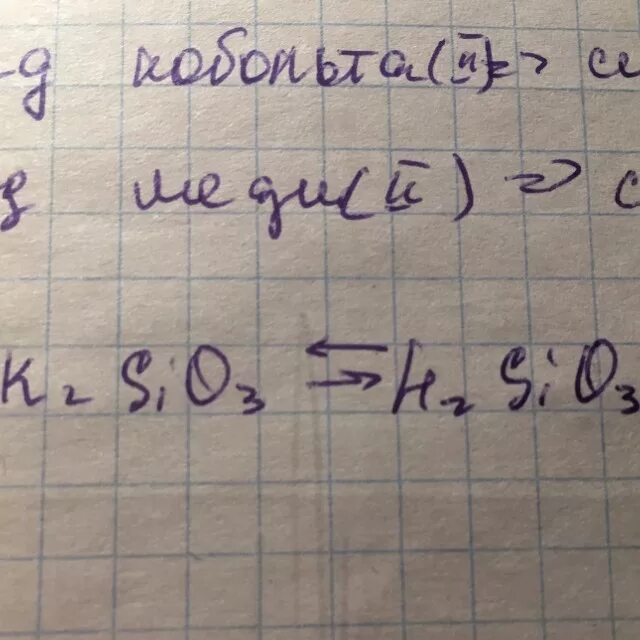 -д кобольта(II) => си
д меди(II) => с
K₂SiO₃ ⇄ H₂SiO₃